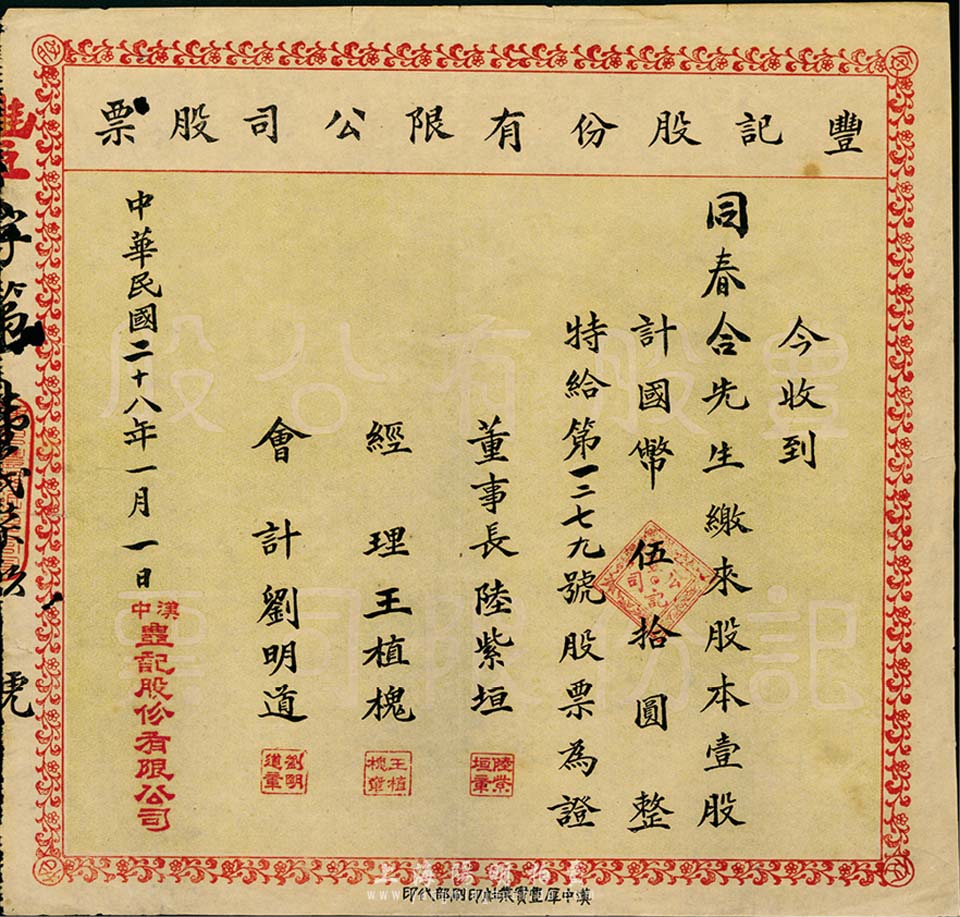 豐記股份有限公司股票
今收到
同春合先生繳來股本壹股
計國幣伍拾圓整
特給第一二七九號股票為證
董事長陸紫垣
陸紫垣章
經理王植槐
王植槐章
會計劉明道
劉明道章
中華民國二十八年一月一日
漢中
豐記股份有限公司
公司
記
豐記股份有限公司股票
字第
號
上海陽明拍賣
印刷部代印